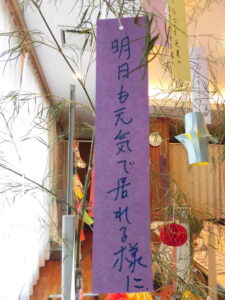 明日も元気で居れる様に